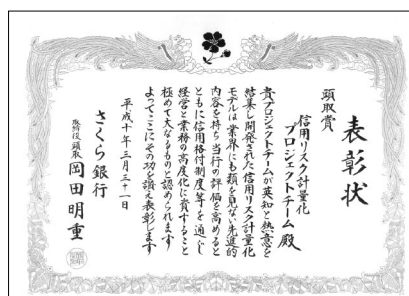 表彰状
頭取賞
信用リスク計量化
プロジェクトチーム 殿
貴プロジェクトチームが英知と熱意を
結集し開発された信用リスク計量化
モデルは業界にも類を見ない先進的
内容を持ち当行の評価を高めると
ともに信用格付制度等を通じ
経営と業務の高度化に資すること
極めて大なるものと認められます
よってここにその功を讃え表彰します
平成十年三月三十一日
さくら銀行
取締役頭取 岡田明重